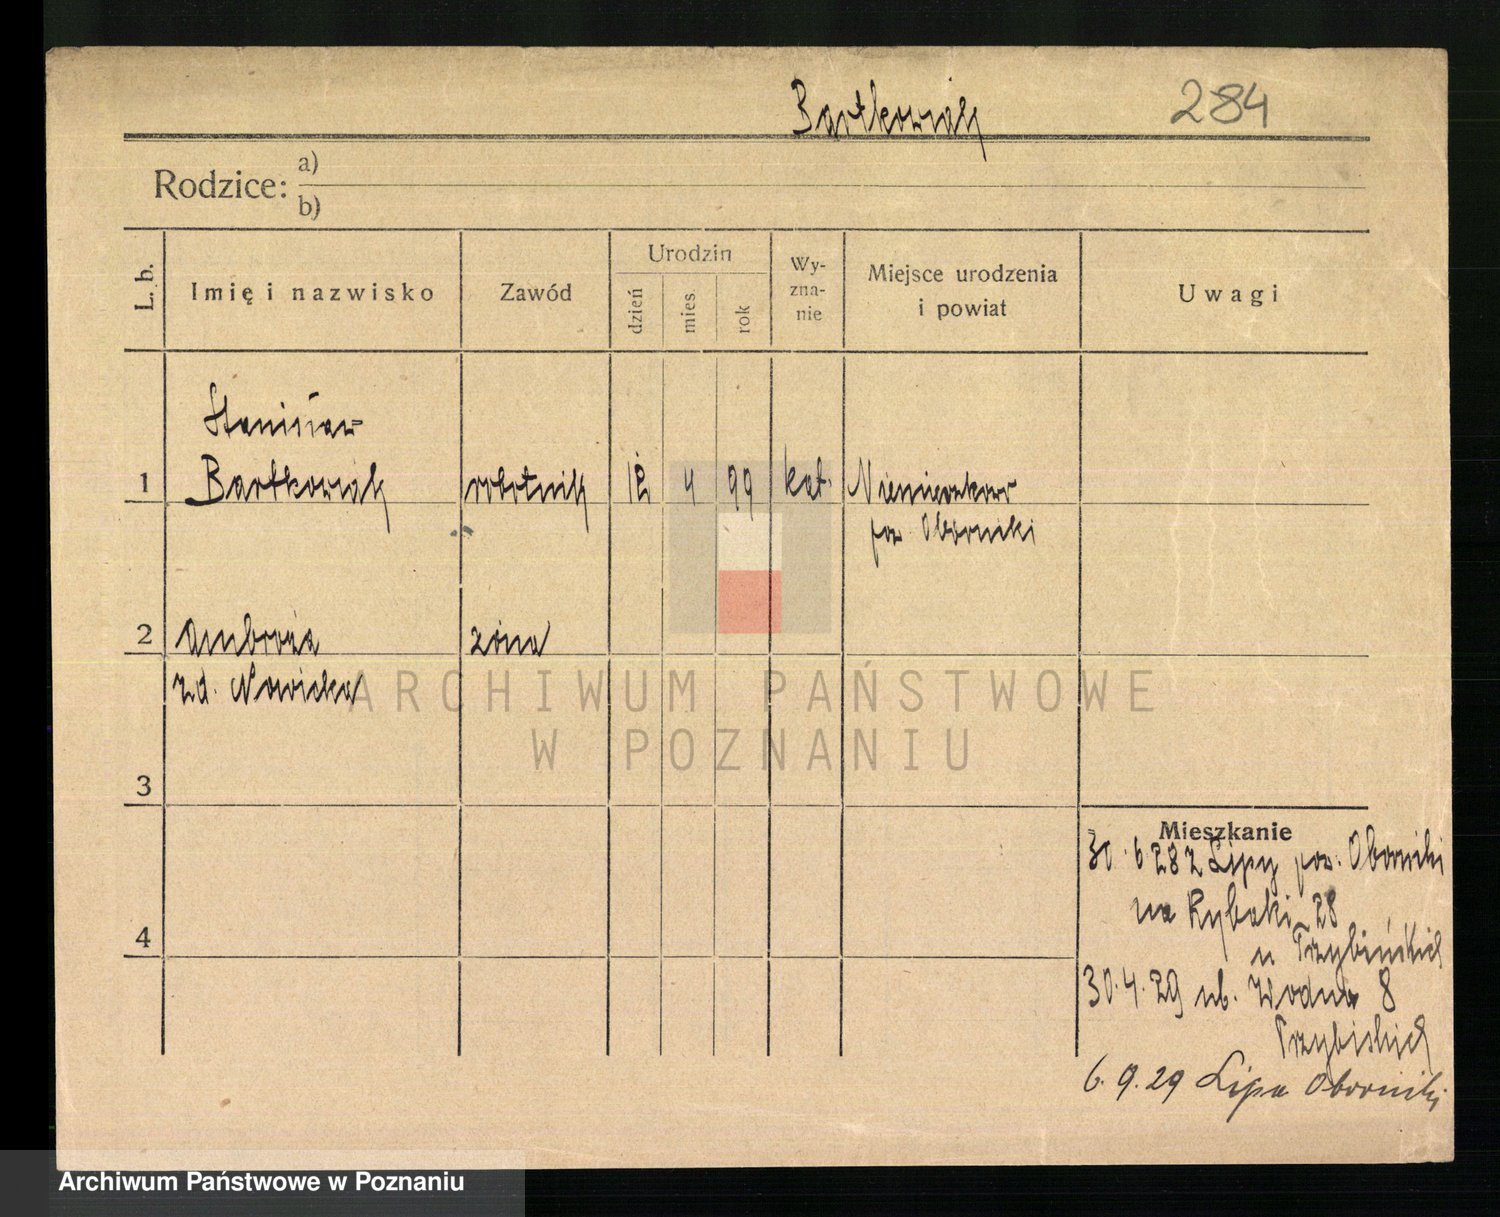 Bartkowiak 284
Rodzice: a)
b)
L. b.
Imię i nazwisko
Zawód
Urodzin
dzień
mies
rok
Wy-
zna-
nie
Miejsce urodzenia
i powiat
Uwagi
Stanisław
1 Bartkowiak robotnik 4 99 kat. Niemieczkowo
pow. Oborniki
2 Ambroża żona
zd. Nowicka
3
4
Mieszkanie
30.6 28 z Lipy pow. Oborniki
na Rybaki 28
u
30.4.29 ul. Wodna 8
6.9.29 Lipa Oborniki
ARCHIWUM PAŃSTWOWE
W POZNANIU
Archiwum Państwowe w Poznaniu